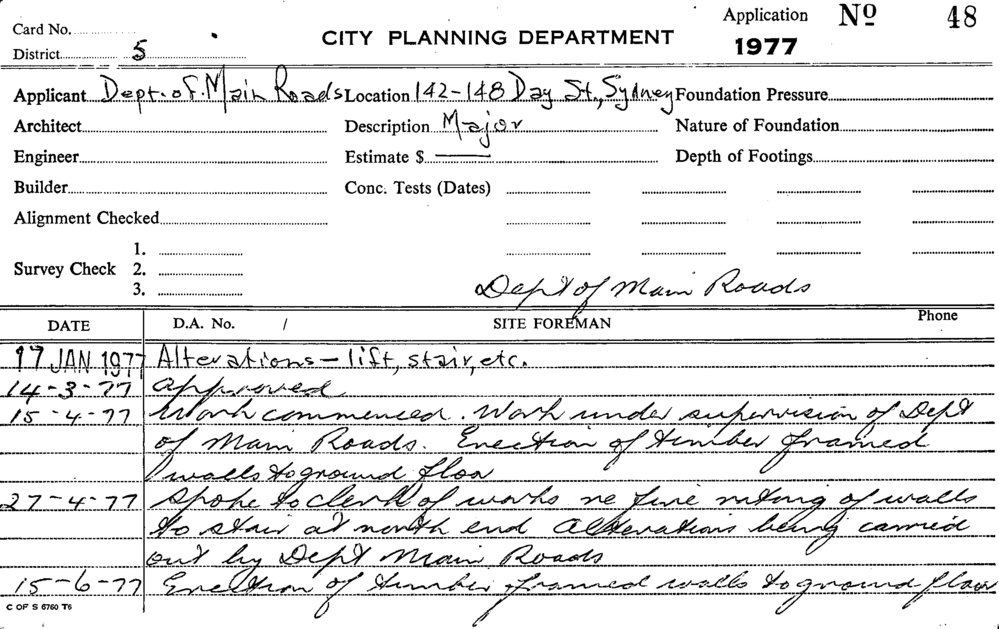 Card No.
District 5
CITY PLANNING DEPARTMENT
Application No 48
1977
Applicant Dept. of Main Roads Location 142-148 Day St., Sydney Foundation Pressure
Architect Description Major Nature of Foundation
Engineer Estimate $ — Depth of Footings
Builder Conc. Tests (Dates)
Alignment Checked
1.
Survey Check 2.
3.
Dept of Main Roads
DATE D.A. No. / SITE FOREMAN Phone
17 JAN 1977 Alterations - lift, stair, etc.
14-3-77 approved
15-4-77 Work commenced. Work under supervision of Dept
of Main Roads. Erection of timber framed
walls to ground floor
27-4-77 Spoke to clerk of works re fire rating of walls
to stair at north end Alterations being carried
out by Dept Main Roads
15-6-77 Erection of timber framed walls to ground floor
C OF S 6760 T6